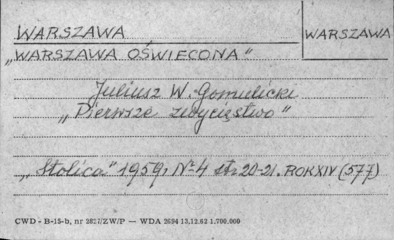 WARSZAWA
WARSZAWA
„WARSZAWA OŚWIECONA"
Juliusz W. Gomulicki
„Pierwsze zwycięstwo"
„Stolica" 1959, Nr 4 str. 20-21. ROK XIV (577)
CWD - B-15-b, nr 2827/ZW/P — WDA 2694 13.12.62 1.700.000